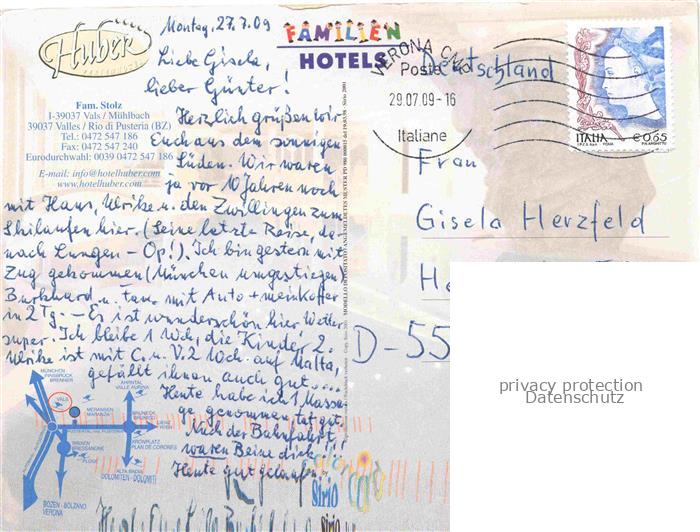 Montag, 27.7.09
Huber
FAMILIEN
HOTELS
Liebe Gisela,
lieber Günter!
Fam. Stolz
I-39037 Vals / Mühlbach
39037 Valles / Rio di Pusteria (BZ)
Tel.: 0472 547 186
Fax: 0472 547 240
Eurodurchwahl: 0039 0472 547 186
E-mail: info@hotelhuber.com
www.hotelhuber.com
Herzlich grüßen wir
Euch aus dem sonnigen
Süden. Wir waren
ja vor 10 Jahren noch
mit Hans, Ulrike u. den Zwillingen zum
Skilaufen hier. (Seine letzte Reise, da-
nach Lungen-Op!). Ich bin gestern mit
Zug gekommen (München umgestiegen)
Burkhard u. Fam. mit Auto + mein Koffer
in 2 Tg. – Es ist wunderschön hier Wetter
super. Ich bleibe 1 Wch, die Kinder 2.
Ulrike ist mit C. u. V. 2 Wch. auf Malta,
gefällt ihnen auch gut....
Heute habe ich 1 Massa-
ge genommen, tat gut.
Nach der Bahnfahrt
waren Beine dick!!!
Heute gut gelaufen
MÜNCHEN
INNSBRUCK
BRENNER
VALS
MERANSEN
MARANZA
AHRNTAL
VALLE AURINA
BRUNECK
BRUNICO
LIENZ
WIEN
BRIXEN
BRESSANONE
PLOSE
KRONPLATZ
PLAN DE CORONES
ALTA BADIA
DOLOMITEN-DOLOMITI
BOZEN - BOLZANO
VERONA
Sirio
VERONA
Poste
29.07.09 - 16
Italiane
ITALIA
€0,65
Deutschland
Frau
Gisela Herzfeld
D-55
privacy protection
Datenschutz